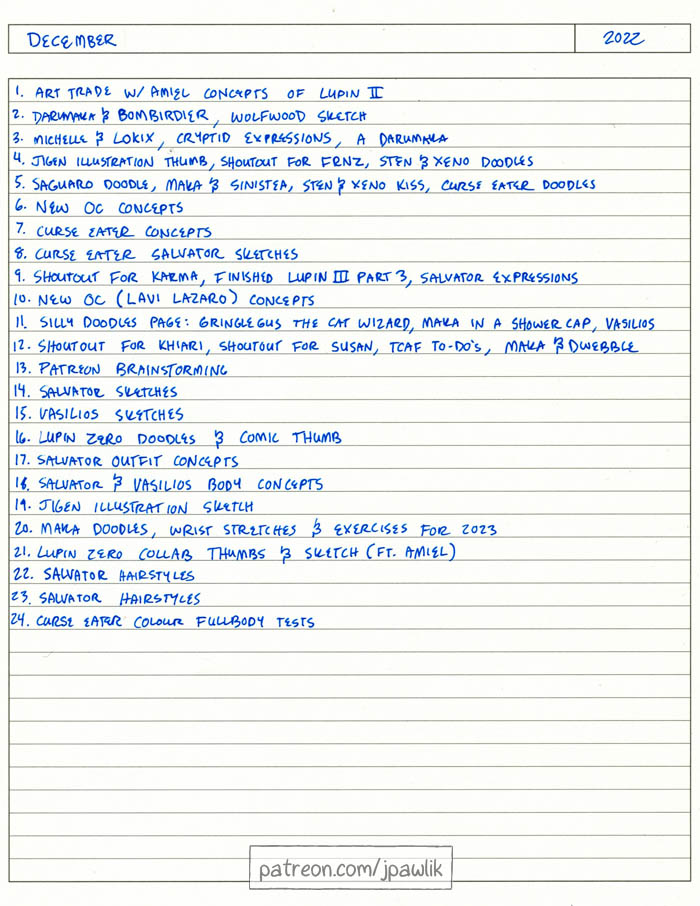 DECEMBER 2022
1. ART TRADE W/ AMIEL CONCEPTS OF LUPIN II
2. DARUMAKA & BOMBIRDIER, WOLFWOOD SKETCH
3. MICHELLE & LOKIX, CRYPTID EXPRESSIONS, A DARUMAKA
4. JIGEN ILLUSTRATION THUMB, SHOUTOUT FOR FRNZ, STEN & XENO DOODLES
5. SAGUARO DOODLE, MAKA & SINISTEA, STEN & XENO KISS, CURSE EATER DOODLES
6. NEW OC CONCEPTS
7. CURSE EATER CONCEPTS
8. CURSE EATER SALVATOR SKETCHES
9. SHOUTOUT FOR KARMA, FINISHED LUPIN III PART 3, SALVATOR EXPRESSIONS
10. NEW OC (LAVI LAZARO) CONCEPTS
11. SILLY DOODLES PAGE: GRINGLEGUS THE CAT WIZARD, MAKA IN A SHOWER CAP, VASILIOS
12. SHOUTOUT FOR KHIARI, SHOUTOUT FOR SUSAN, TCAF TO-DO'S, MAKA & DWEBBLE
13. PATREON BRAINSTORMING
14. SALVATOR SKETCHES
15. VASILIOS SKETCHES
16. LUPIN ZERO DOODLES & COMIC THUMB
17. SALVATOR OUTFIT CONCEPTS
18. SALVATOR & VASILIOS BODY CONCEPTS
19. JIGEN ILLUSTRATION SKETCH
20. MAKA DOODLES, WRIST STRETCHES & EXERCISES FOR 2023
21. LUPIN ZERO COLLAB THUMBS & SKETCH (FT. AMIEL)
22. SALVATOR HAIRSTYLES
23. SALVATOR HAIRSTYLES
24. CURSE EATER COLOUR FULLBODY TESTS
patreon.com/jpawlik